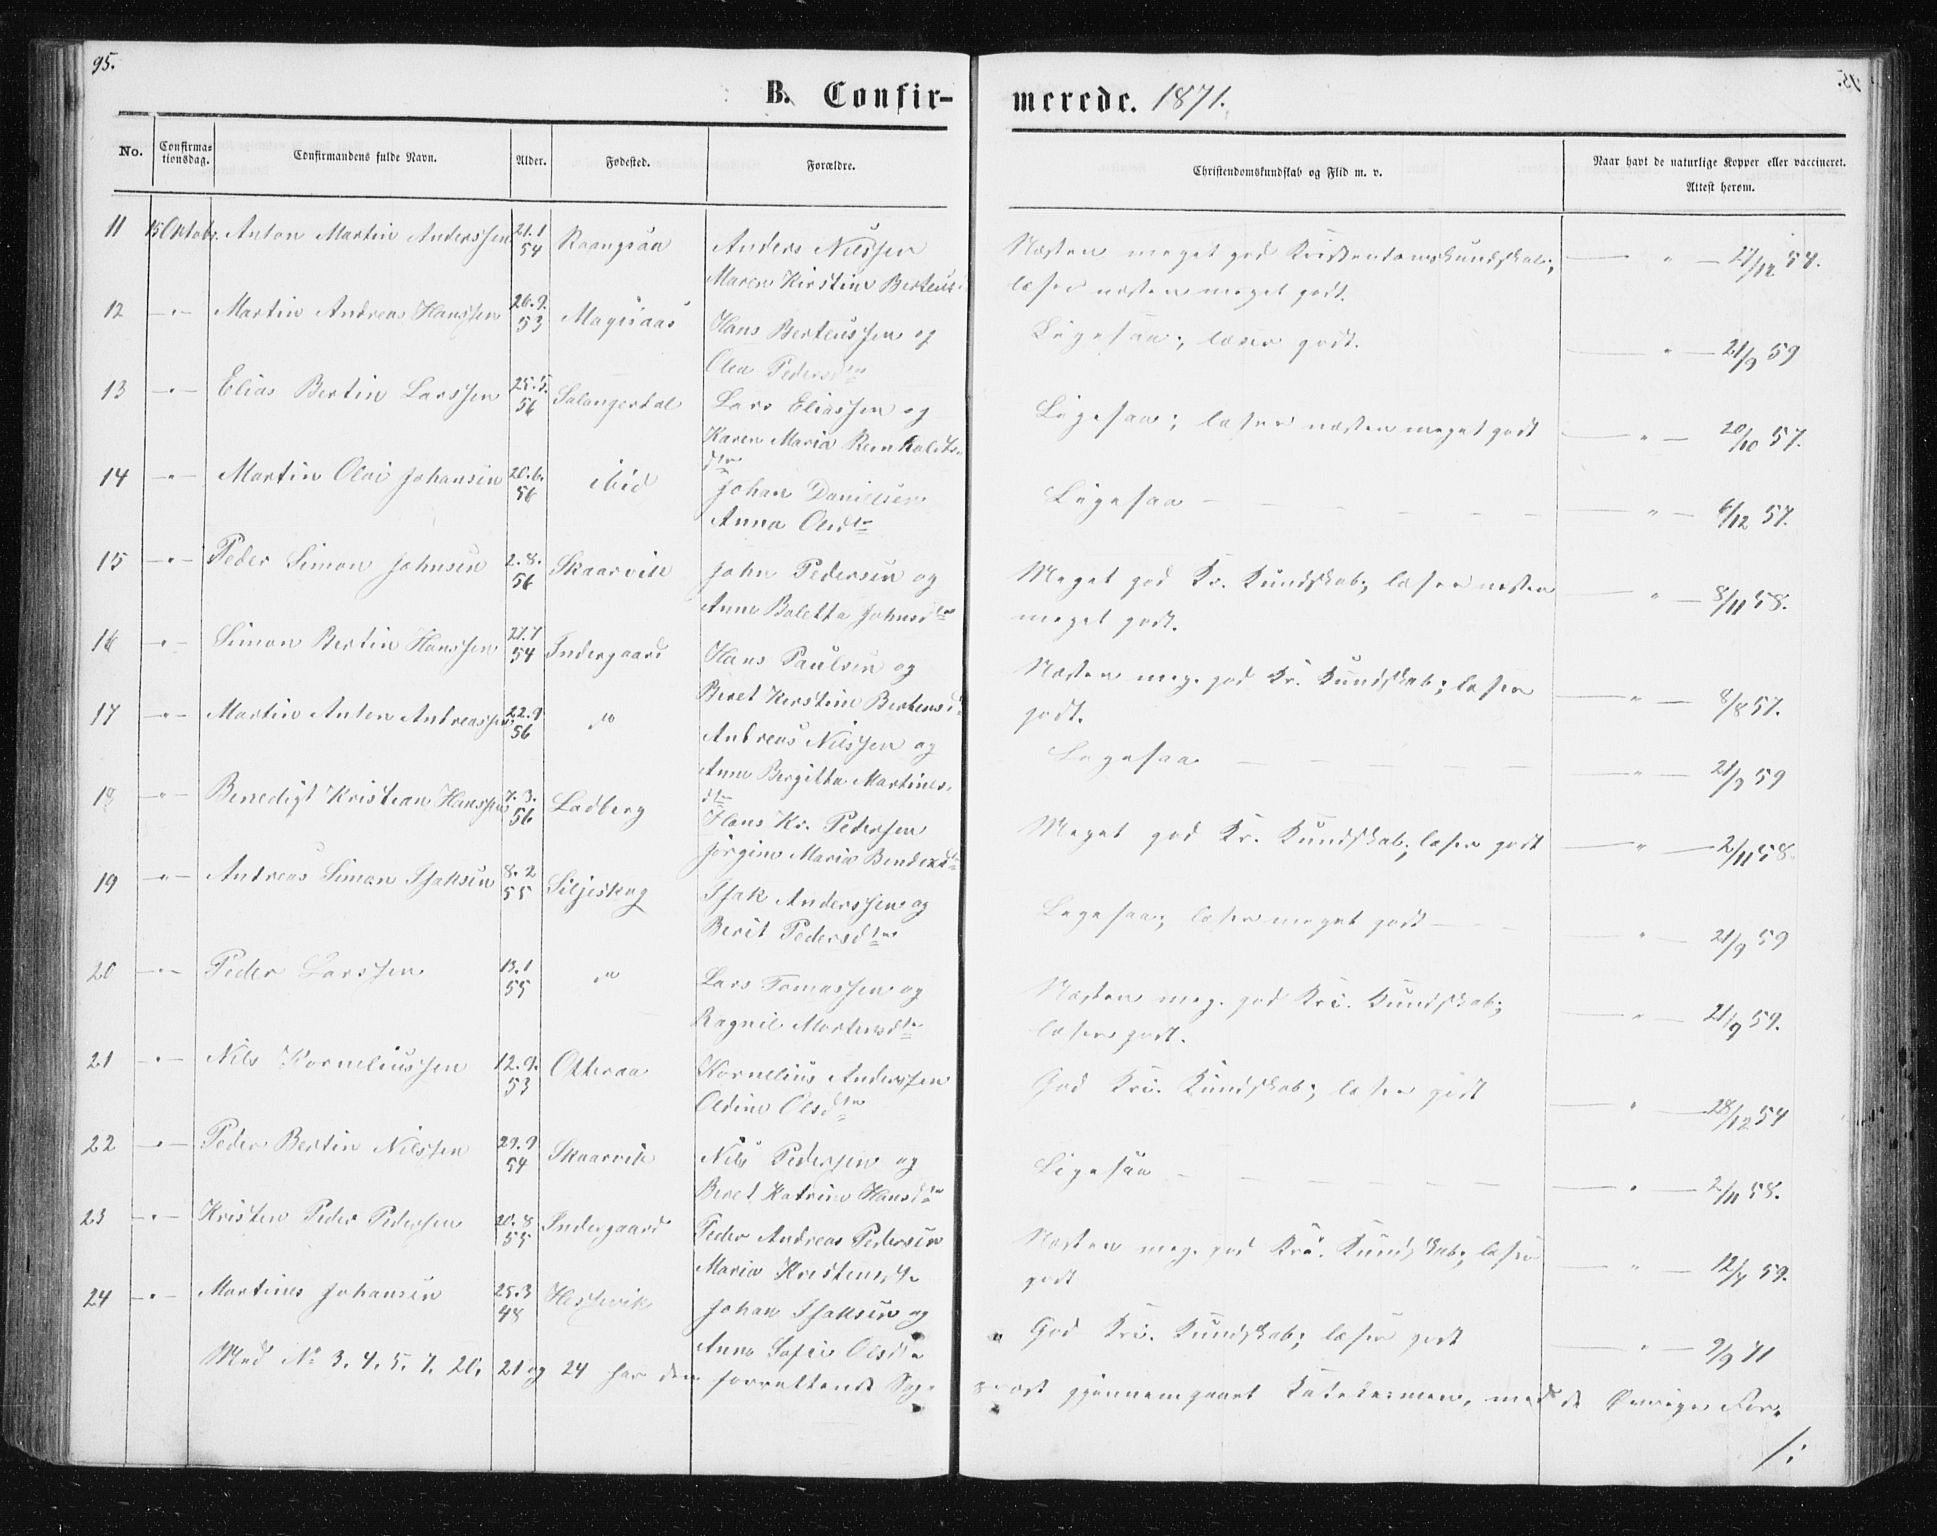 95.
B. Confir-
merede. 1871.
No.
Confirma-
tionsdag.
Confirmandens fulde Navn.
Alder.
Fødested.
Forældre.
Christendomskundskab og Flid m. v.
Naar havt de naturlige Kopper eller vaccineret.
Attest herom.
11 15 Oktob. Anton Martin Anderssen 21.1 54 Anders Nilssen
Maren Kirstine
Næsten meget god Kristendomskundskab; 54.
læser næsten meget godt.
12 — " — Martin Andreas Hanssen 26.9. 53 Hans Berteussen og
Olea Pedersdtr
Ligesaa; læser godt. — " — 21/9 59
13 — " — Elias Bertin Larssen 25.5. 56 Salangerdal Lars Eliassen og
Karen Maria
dtr
Ligesaa; læser næsten meget godt — " — 20/10 57.
14 — " — Martin Olai Johansen 20.6. 56 ibid Johan
Anna Olsdtr
Ligesaa — " — 6/12 57.
15 — " — Peder Simon Johnsen 2.8. 56 Skaarvik John Pedersen og
Anne Boletta Johnsdtr
Meget god Kr. Kundskab; læser næsten — " — 8/11 58.
meget godt.
16 — " — Simon Bertin Hanssen 54 Indergaard Hans Paulsen og
Beret Kerstine
Næsten meg. god Kr. Kundskab; læser — " — 8/8 57.
godt.
17 — " — Martin Anton Andreassen 22.9 56 " Andreas Nilssen og
Anne Bergitta Martines-
dtr
Ligesaa — " — 21/9 59
18 — " — Benedigt Kristian Hanssen 7.3. 56 Ladberg Hans Kr. Pedersen
Jørgine Maria
Meget god Kr. Kundskab; læser godt — " — 2/11 58.
19 — " — Andreas Simon Isaksen 8.2 55 Siljeskog Isak Anderssen og
Berit Pedersdtr
Ligesaa; læser meget godt — " — 21/9 59
20 — " — Peder Larssen 13.1 55 " Lars Tomassen og
Ragnil Mortensdtr
Næsten meg. god Kri. Kundskab; — " — 21/9 59.
læser godt.
21 — " — Nils Korneliussen 12.9. 53 Otteraa Kornelius Anderssen
Oldine Olsdtr
God Kri. Kundskab; læser godt — " — 28/12 54
22 — " — Peder Bertin Nilssen 29.9 54 Skaarvik Nils Pedersen og
Beret Katrine Hansdtr
Ligesaa — " — 2/11 58.
23 — " — Kristen Peder Pedersen 20.8 55 Indergaard Peder Andreas Pedersen
Maria Kristensdtr
Næsten meg. god Kri. Kundskab; læser — " — 59.
godt
24 — " — Martines Johansen 25.3 48 Johan Isaksen og
Anne Sofie Olsdtr
God Kri. Kundskab; læser godt — " — 9/9 71
Med No 3. 4. 5. 7. 20. 21 og 24 har den forrettende Sog-
gjennemgaaet med de Øvrige For-
/: